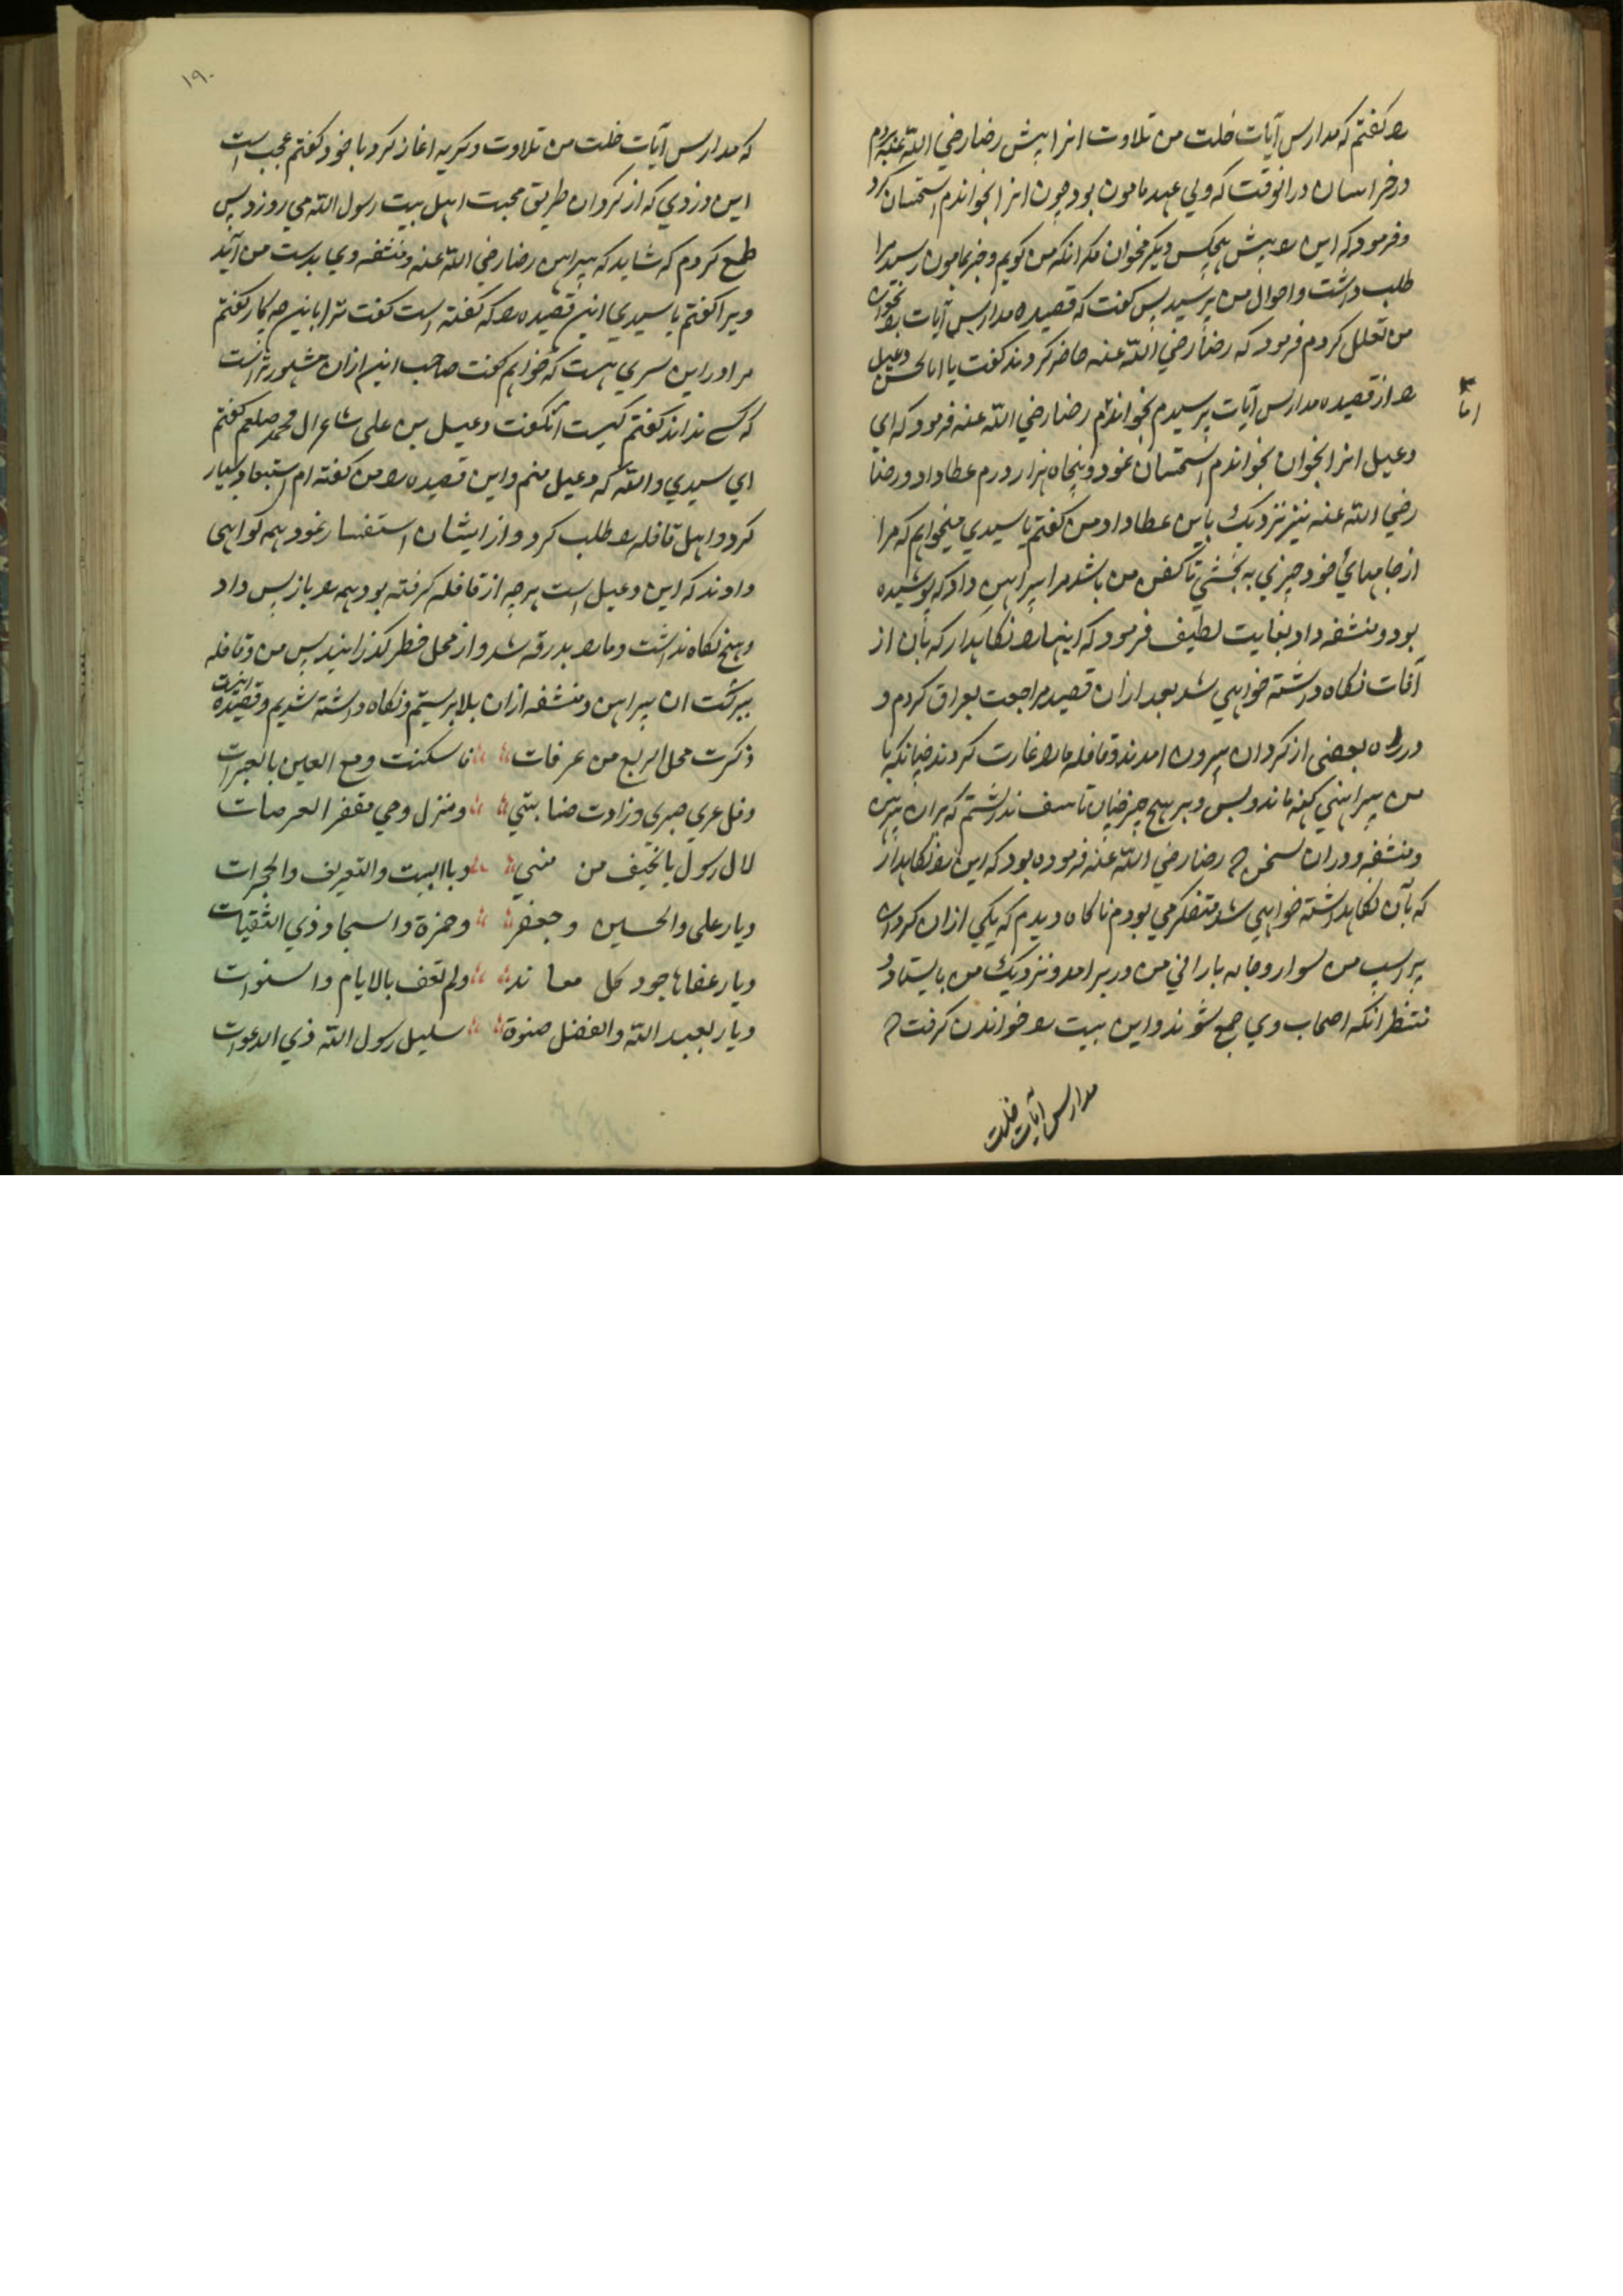 را گفتم که مدارس آیات خلت من تلاوت انرا پیش رضا رضي الله عنه بردم
در خراسان در انوقت که ولي عهد مامون بود چون انرا بخواندم استحسان کرد
و فرمود که این را پیش هیچکس دیگر مخوان مکر انکه من کویم و خبر بمامون رسید مرا
طلب داشت و احوال من پرسید پس کفت که قصیده مدارس آیات را بخوان
من تعلل کردم فرمود که رضا رضي الله عنه حاضر کردند کفت یا ابا الحسن دعبل
را از قصیده مدارس آیات پرسیدم نخواند رضا رضي الله عنه فرمود که اي
دعبل انرا بخوان بخواندم استحسان نمود و پنجاه هزار درم عطا داد و رضا
رضي الله عنه نیز نزدیک باین عطا داد من کفتم یا سیدي میخواهم که مرا
از جامهاي خود چیزي به بخشي تا کفن من باشد مرا پیراهن داد که پوشیده
بود و منشفه داد بغایت لطیف فرمود که اینها را نکاهدار که بآن از
آفات نکاه داشته خواهي شد بعد از ان قصید مراجعت بعراق کردم و
در راه بعضی از کردان بیرون امدند و قافله ما را غارت کردند چنانکه با
من پیراهني کهنه ماند و بس و بر هیچ چیز چنان تاسف نداشتم که بران پیراهن
و منشفه و در ان سخن که رضا رضي الله عنه فرموده بود که این را نکاهدار
که بآن نکاهداشته خواهي شد متفکر مي بودم ناکاه دیدم که یکي از ان کردان
بر اسب من سوار و جامه باراني من در بر امد و نزدیک من بایستاد و
منتظر انکه اصحاب وي جمع شوند و این بیت را خواندن کرفت که
مدارس آیات خلت
۱۹۰
که مدارس آیات خلت من تلاوت و کریه اغاز کرد با خود کفتم عجب است
این دزدي که از کردان طریق محبت اهل بیت رسول الله مي روزد پس
طمع کردم که شاید که پیراهن رضا رضي الله عنه و منشفه وي بدست من آید
ویرا کفتم یا سیدي این قصیده را که کفته است کفت ترا باین چه کار کفتم
مرا در این سري هست که خواهم کفت صاحب این از ان مشهورتر است
که کسے نداند کفتم کیست کفت دعبل بن علی شاعر ال محمد صلعم کفتم
اي سیدي والله که دعبل منم و این قصیده را من کفته ام استبعاد بسیار
کرد و اهل قافله را طلب کرد و از ایشان استفسار نمود همه کواهی
دادند که این دعبل است هر چه از قافله کرفته بود همه را باز پس داد
و هیچ نکاه نداشت و ما را بدرقه شد و از محل خطر کذرانید پس من و قافله
ببرکت ان پیراهن و منشفه از ان بلا برستیم و نکاه داشته شدیم و قصیده اینست
ذکرت محل الربع من عرفات فاسکنت دمع العین بالعبرات
وفل عري صبری وزادت صنابتي ومنزل وحی مقفر العرصات
لال رسول بالخیف من منی وبا البیت والتعریف والجمرات
دیار علی والحسین وجعفر وحمزة والسجاد ذي الثفنات
دیار عفاها جود کل معاند ولم تعف بالایام والسنوات
دیار لعبد الله والفضل صنوة سلیل رسول الله ذي الدعوات